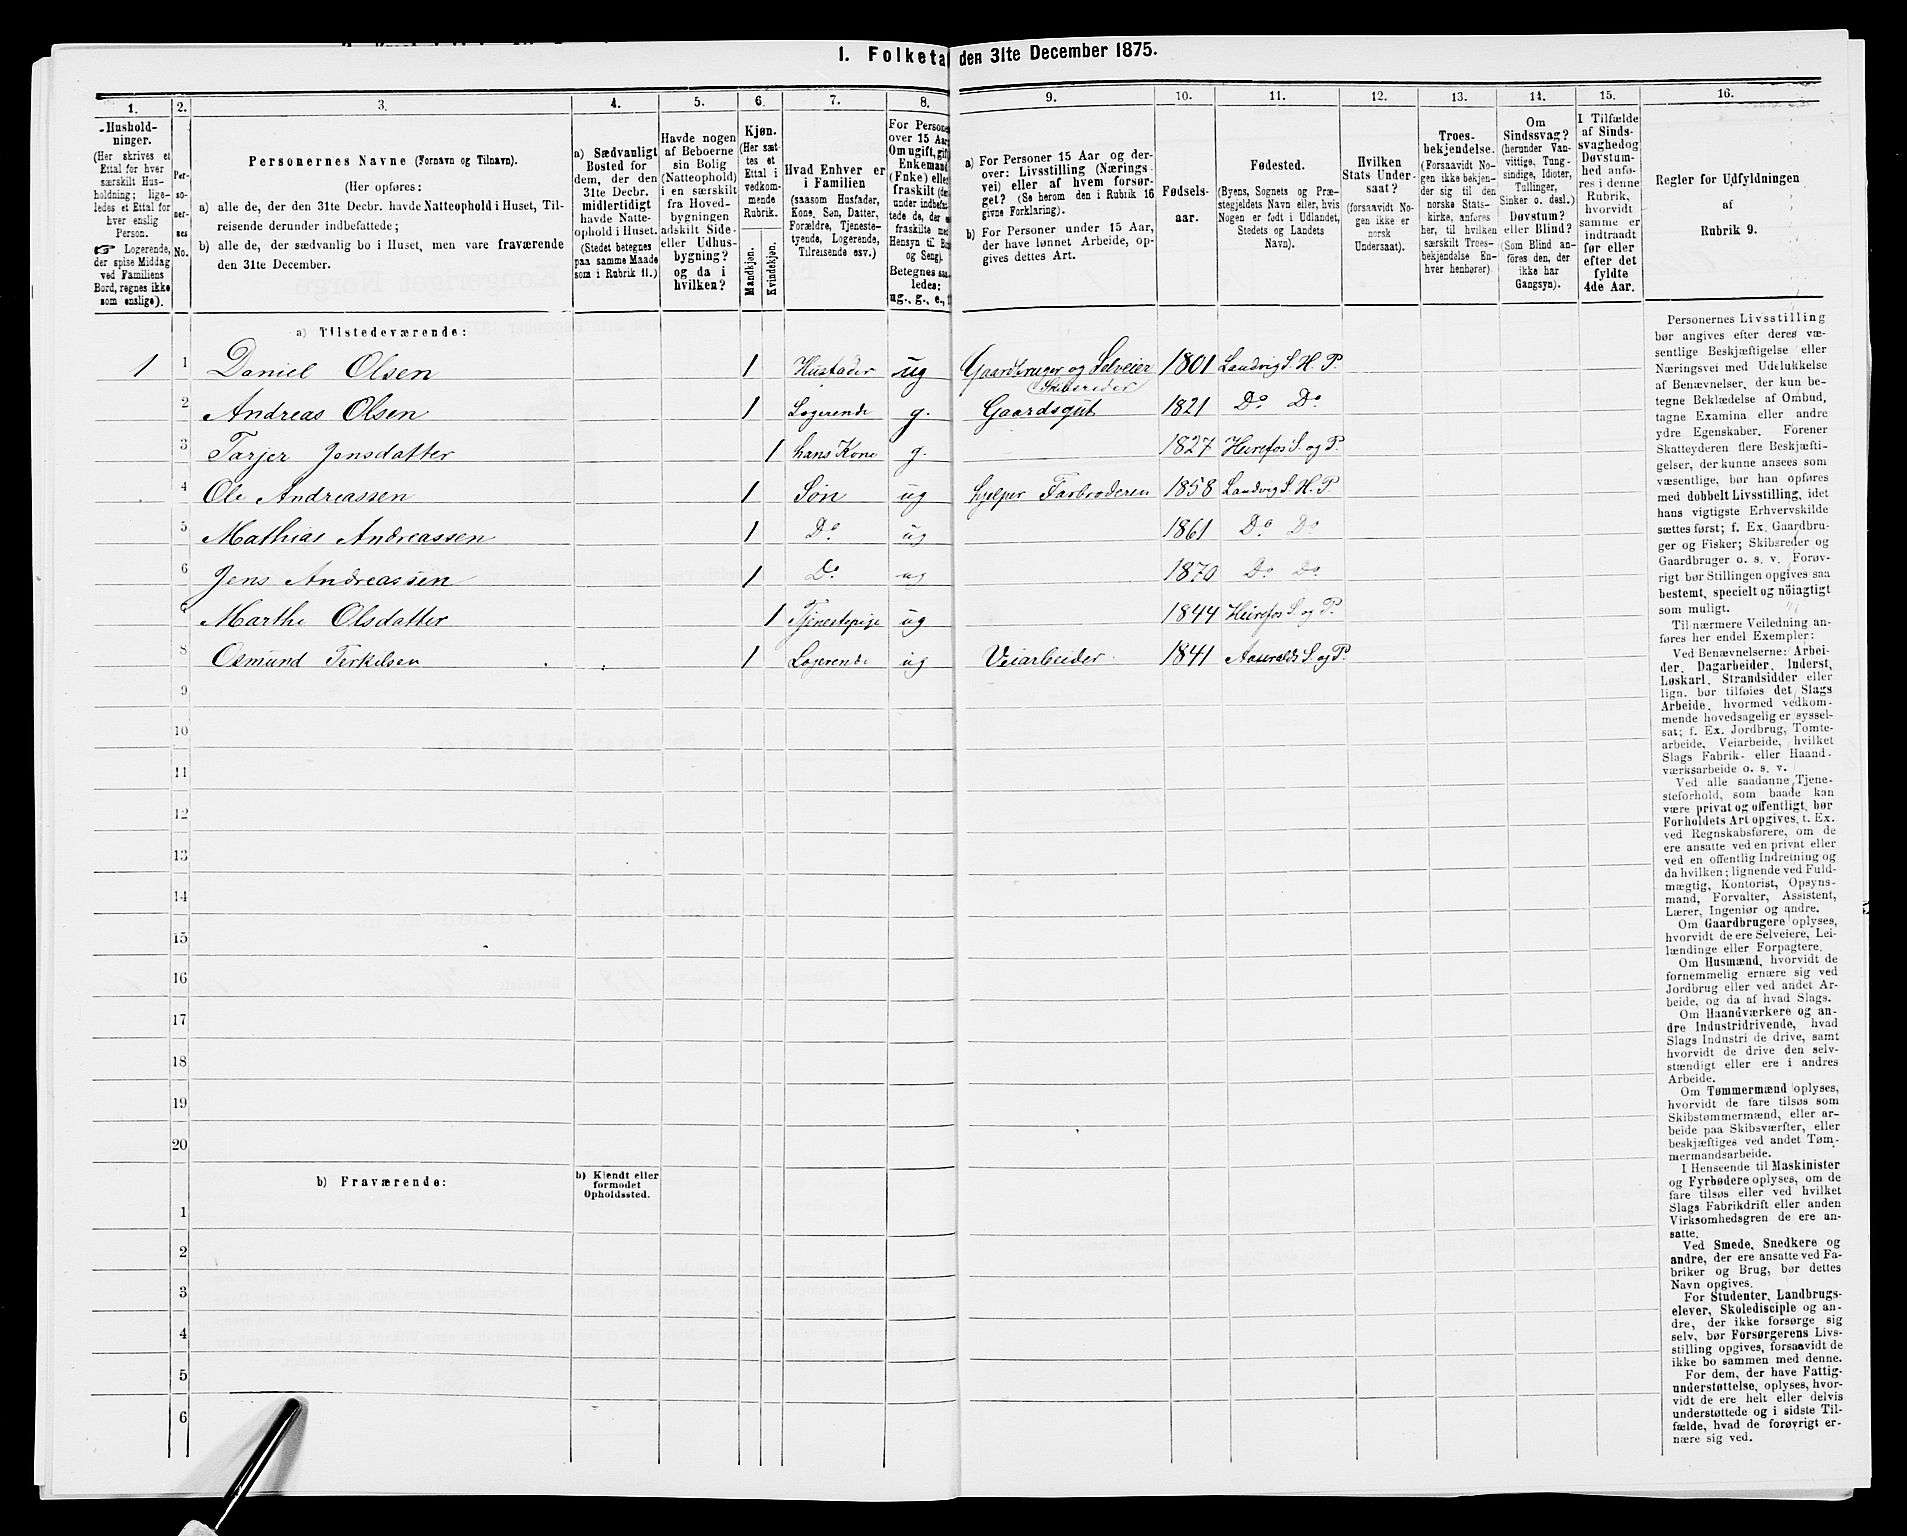 1. Folketal den 31te December 1875.
1. 2. 3. 4. 5. 6. 7. 8. 9. 10. 11. 12. 13. 14. 15. 16.
Hushold-
ninger.
(Her skrives et
Ettal for hver
særskilt Hus-
holdning; lige-
ledes et Ettal for
hver enslig
Person.
☞ Logerende,
der spise Middag
ved Familiens
Bord, regnes ikke
som enslige).
Per-
so-
ner-
nes
No.
Personernes Navne (Fornavn og Tilnavn).
(Her opføres:
a) alle de, der den 31te Decbr. havde Natteophold i Huset, Til-
reisende derunder indbefattede;
b) alle de, der sædvanlig bo i Huset, men vare fraværende
den 31te December.
a) Sædvanligt
Bosted for
dem, der den
31te Decbr.
midlertidigt
havde Natte-
ophold i Huset.
(Stedet betegnes
paa samme Maade
som i Rubrik 11.)
Havde nogen
af Beboerne
sin Bolig
(Natteophold)
i en særskilt
fra Hoved-
bygningen
adskilt Side-
eller Udhus-
bygning?
og da i
hvilken?
Kjøn.
(Her sæt-
tes et
Ettal i
vedkom-
mende
Rubrik.
Mandkjøn.
Kvindekjøn.
Hvad Enhver er
i Familien
(saasom Husfader,
Kone, Søn, Datter,
Forældre, Tjeneste-
tyende, Logerende,
Tilreisende osv.)
For Persone
over 15 Aar
Om ugift, gift
Enkemand
(Enke) elle
fraskilt (der
under indbefat
tede de, der er
fraskilte med
Hensyn til B
og Seng).
Betegnes saa
ledes:
ug., g., e., f
a) For Personer 15 Aar og der-
over: Livsstilling (Nærings-
vei) eller af hvem forsør-
get? (Se herom den i Rubrik 16
givne Forklaring).
b) For Personer under 15 Aar,
der have lønnet Arbeide, op-
gives dettes Art.
Fødsels-
aar.
Fødested.
(Byens, Sognets og Præ-
stegjeldets Navn eller, hvis
Nogen er født i Udlandet,
Stedets og Landets
Navn).
Hvilken
Stats Under-
saat?
(forsaavidt No-
gen ikke er
norsk
Undersaat).
Troes-
bekjendelse.
(Forsaavidt No-
gen ikke bekjen-
der sig til den
norske Stats-
kirke, anføres
her, til hvilken
særskilt Troes-
bekjendelse En-
hver henhører).
Om
Sindssvag?
(herunder Van-
vittige, Tung-
sindige, Idioter,
Tullinger,
Sinker o. desl.)
Døvstum?
eller Blind?
(Som Blind an-
føres den, der
ikke har
Gangsyn).
I Tilfælde
af Sinds-
svaghed og
Døvstum-
hed anfø-
res i denne
Rubrik,
hvorvidt
samme er
indtraadt
før eller
efter det
fyldte
4de Aar.
Regler for Udfyldningen
af
Rubrik 9.
a) Tilstedeværende:
1 1 Daniel Olsen 1 Husfader ug Gaardbruger og Selveier Skibsreder 1801 Landvig S. H. P.
2 Andreas Olsen 1 Logerende g. Gaardsgut 1821 Do Do
3 Tarjer Jensdatter 1 hans Kone g. 1827 Heirefos S. og P.
4 Ole Andreassen 1 Søn ug hjelper Farbroderen 1858 Landvig S. H. P.
5 Mathias Andreassen 1 Do ug 1861 Do Do
6 Jens Andreassen 1 Do ug 1870 Do Do
7 Marthe Olsdatter 1 Tjenestepige ug 1844 Heirefos S. og P.
8 Osmund Terkelsen 1 Logerende ug Veiarbeider 1841 Aaseralds S. og P.
9
10
11
12
13
14
15
16
17
18
19
20
b) Fraværende:
b) Kjendt eller
formodet
Opholdssted.
1
2
3
4
5
6
Personernes Livsstilling
bør angives efter deres væ-
sentlige Beskjæftigelse eller
Næringsvei med Udelukkelse
af Benævnelser, der kun be-
tegne Beklædelse af Ombud,
tagne Examina eller andre
ydre Egenskaber. Forener
Skatteyderen flere Beskjæfti-
gelser, der kunne ansees som
væsentlige, bør han opføres
med dobbelt Livsstilling, idet
hans vigtigste Erhvervskilde
sættes først; f. Ex. Gaardbru-
ger og Fisker; Skibsreder og
Gaardbruger o. s. v. Forøv-
rigt bør Stillingen opgives saa
bestemt, specielt og nøiagtigt
som muligt.
Til nærmere Veiledning an-
føres her endel Exempler:
Ved Benævnelserne: Arbei-
der, Dagarbeider, Inderst,
Løskarl, Strandsidder eller
lign. bør tilføies det Slags
Arbeide, hvormed vedkom-
mende hovedsagelig er syssel-
sat; f. Ex. Jordbrug, Tomte-
arbeide, Veiarbeide, hvilket
Slags Fabrik- eller Haand-
værksarbeide o. s. v.
Ved alle saadanne Tjene-
steforhold, som baade kan
være privat og offentligt, bør
Forholdets Art opgives, t. Ex.
ved Regnskabsførere, om de
ere ansatte ved en privat eller
ved en offentlig Indretning og
da hvilken; lignende ved Fuld-
mægtig, Kontorist, Opsyns-
mand, Forvalter, Assistent,
Lærer, Ingeniør og andre.
Om Gaardbrugere oplyses,
hvorvidt de ere Selveiere, Lei-
lændinge eller Forpagtere.
Om Husmænd, hvorvidt de
fornemmelig ernære sig ved
Jordbrug eller ved andet Ar-
beide, og da af hvad Slags.
Om Haandværkere og an-
dre Industridrivende, hvad
Slags Industri de drive, samt
hvorvidt de drive den selv-
stændigt eller ere i andres
Arbeide.
Om Tømmermænd oplyses,
hvorvidt de fare tilsøs som
Skibstømmermænd, eller ar-
beide paa Skibsværfter, eller
beskjæftiges ved andet Tøm-
mermandsarbeide.
I Henseende til Maskinister
og Fyrbødere oplyses, om de
fare tilsøs eller ved hvilket
Slags Fabrikdrift eller anden
Virksomhedsgren de ere an-
satte.
Ved Smede, Snedkere og
andre, der ere ansatte ved Fa-
briker og Brug, bør dettes
Navn opgives.
For Studenter, Landbrugs-
elever, Skoledisciple og an-
dre, der ikke forsørge sig
selv, bør Forsørgerens Livs-
stilling opgives, forsaavidt de
ikke bo sammen med denne.
For dem, der have Fattig-
understøttelse, oplyses, hvor-
vidt de ere helt eller delvis
understøttede og i sidste Til-
fælde, hvad de forøvrigt er-
nære sig ved.